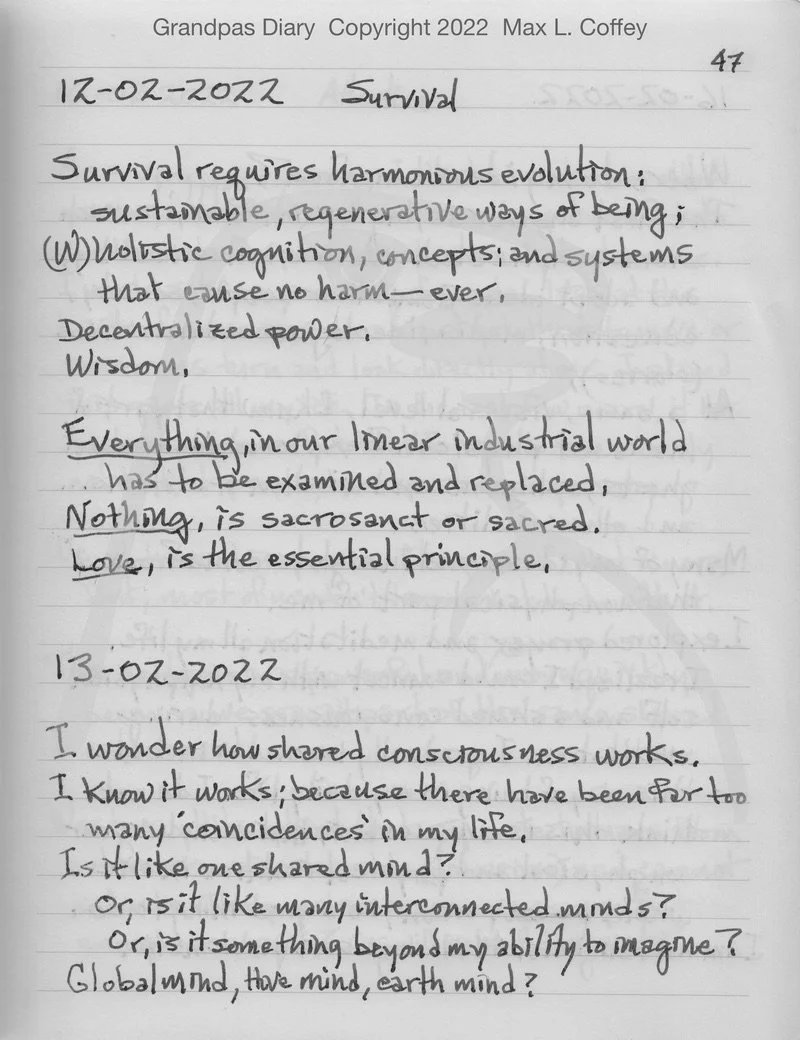 Grandpas Diary Copyright 2022 Max L. Coffey
47
12-02-2022 Survival
Survival requires harmonious evolution;
sustainable, regenerative ways of being;
(W)holistic cognition, concepts; and systems
that cause no harm—ever.
Decentralized power.
Wisdom.
Everything, in our linear industrial world
has to be examined and replaced,
Nothing, is sacrosanct or sacred.
Love, is the essential principle,
13-02-2022
I wonder how shared consciousness works.
I know it works; because there have been far too
many 'coincidences' in my life.
Is it like one shared mind?
Or, is it like many interconnected minds?
Or, is it something beyond my ability to imagine?
Global mind, Hove mind, earth mind?